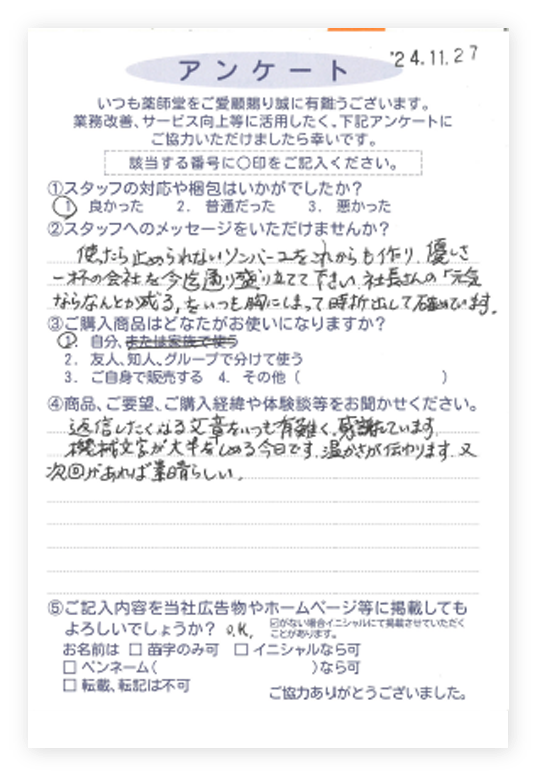 '24.11.27
アンケート
いつも薬師堂をご愛顧賜り誠に有難うございます。
業務改善、サービス向上等に活用したく、下記アンケートに
ご協力いただけましたら幸いです。
該当する番号に〇印をご記入ください。
①スタッフの対応や梱包はいかがでしたか？
1. 良かった 2. 普通だった 3. 悪かった
②スタッフへのメッセージをいただけませんか？
使ったら止められないソンバーユをこれからも作り、優しさ
一杯の会社を今迄通り盛り立てて下さい。社長さんの「元気
ならなんとか成る」をいつも胸にしまって時折出して確めています。
③ご購入商品はどなたがお使いになりますか？
1. 自分、または家族で使う
2. 友人、知人、グループで分けて使う
3. ご自身で販売する 4. その他（ ）
④商品、ご要望、ご購入経緯や体験談等をお聞かせください。
返信したくなる文章をいつも有難く、感謝しています。
機械文字が大半をしめる今日です。温かさが伝わります。又
次回があれば素晴らしい。
⑤ご記入内容を当社広告物やホームページ等に掲載しても
よろしいでしょうか？ O.K. ☑がない場合イニシャルにて掲載させていただく
ことがあります。
お名前は □ 苗字のみ可 □ イニシャルなら可
□ ペンネーム（ ）なら可
□ 転載、転記は不可
ご協力ありがとうございました。